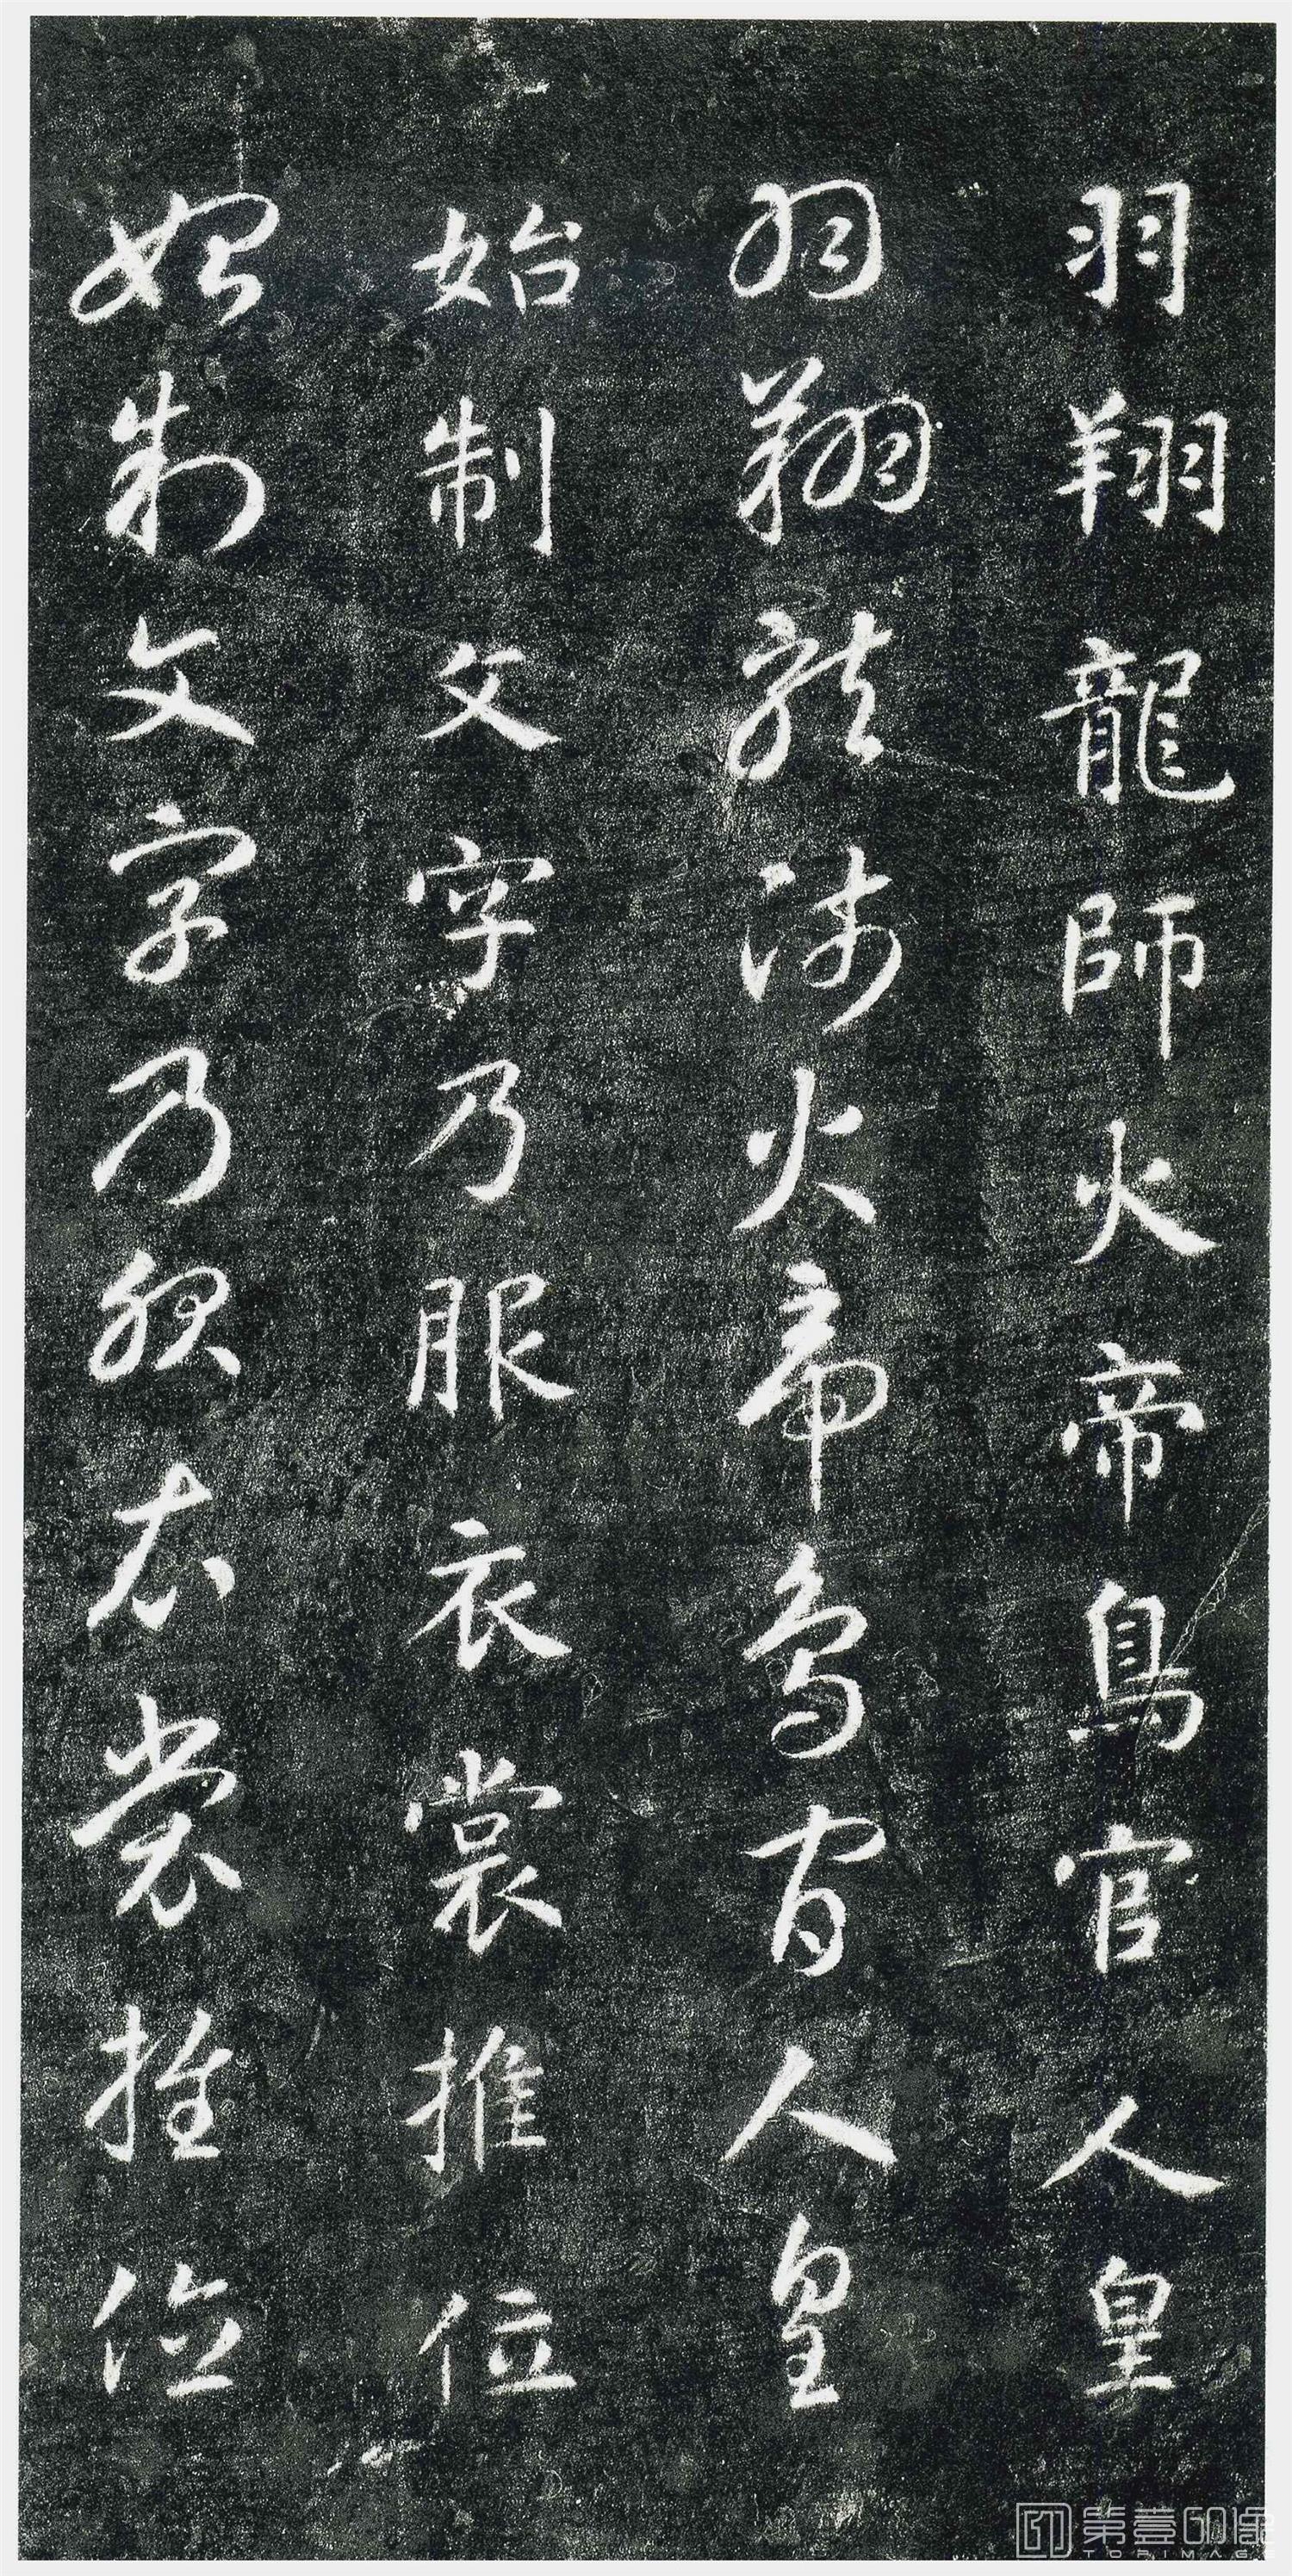 羽翔龍師火帝鳥官人皇
羽翔龍師火帝鳥官人皇
始制文字乃服衣裳推位
始制文字乃服衣裳推位
第壹印像
TOPIMAGE